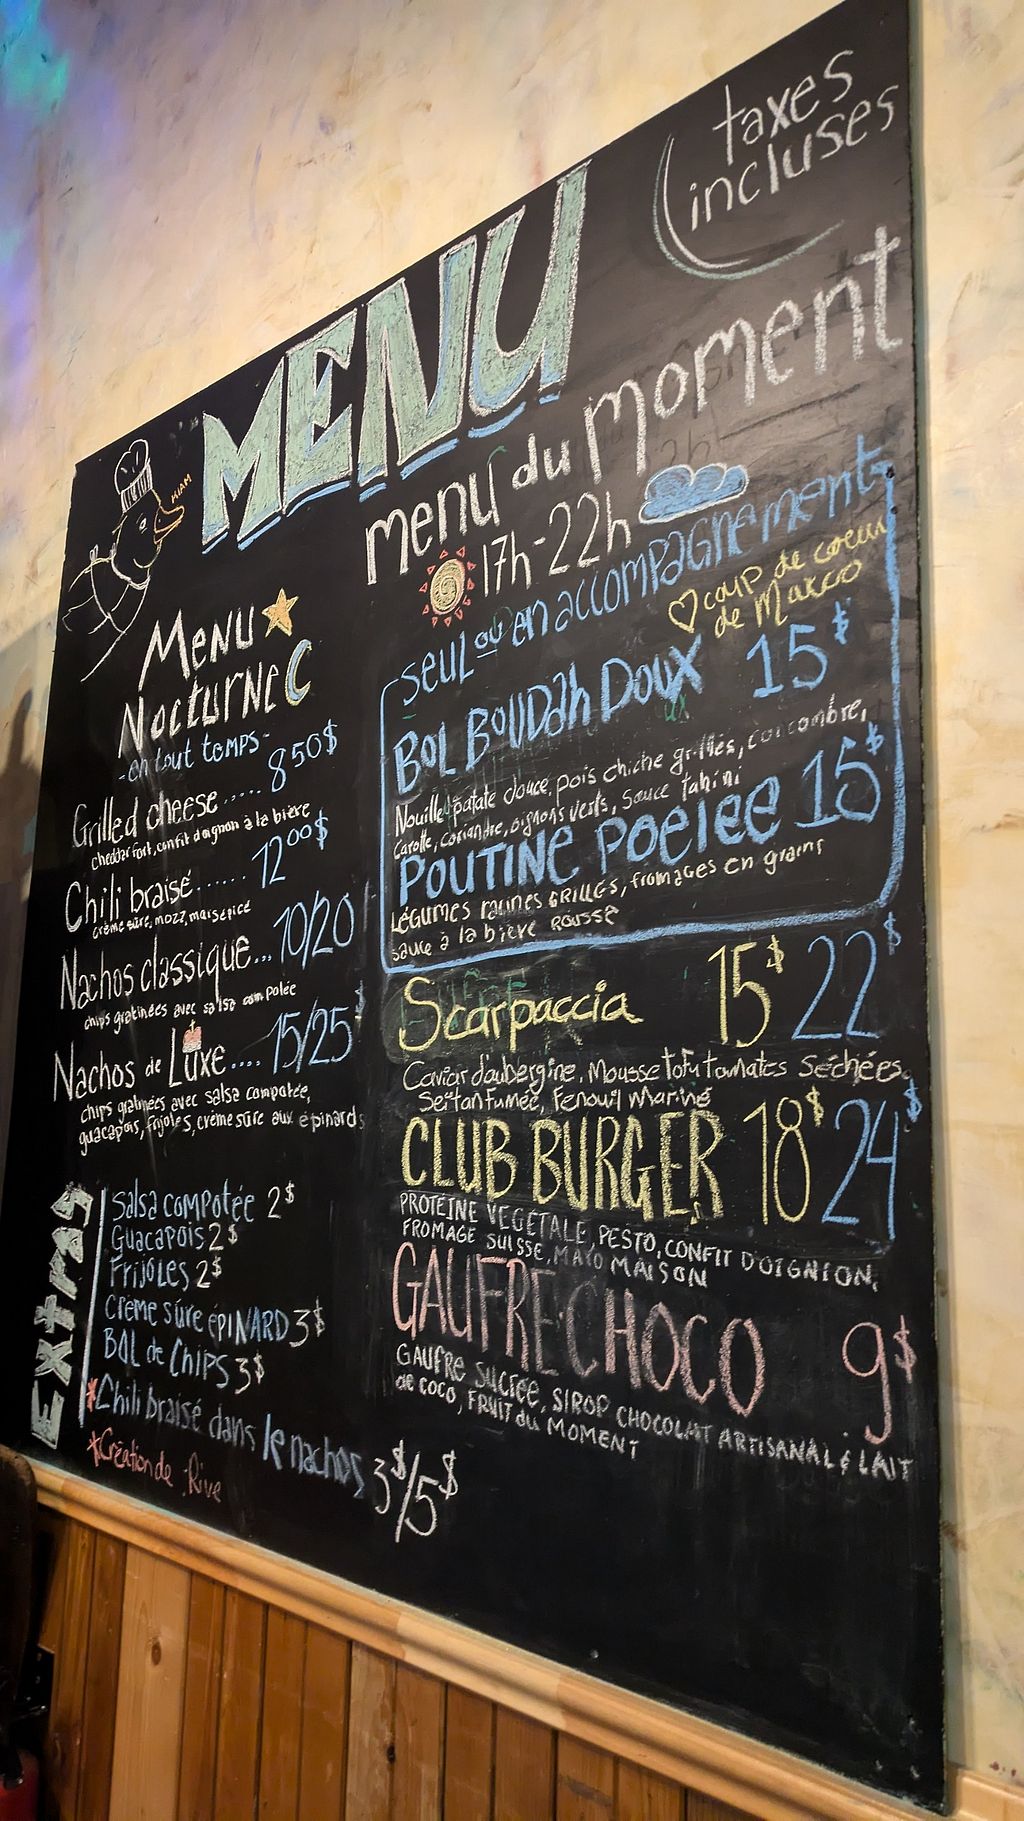 taxes
incluses
MENU
MIAM
menu du moment
17h-22h
Menu
Nocturne
-en tout temps-
Grilled cheese ..... 8 50$
cheddar fort, confit d'oignon à la bière
Chili braisé....... 12 00$
crème sûre, mozz, maïs épicé
Nachos classique... 10/20
chips gratinées avec salsa compotée
Nachos de Luxe.... 15/25$
chips gratinées avec salsa compotée,
guacapois, frijoles, crème sûre aux épinards
EXTRAS
Salsa compotée 2$
Guacapois 2$
Frijoles 2$
Crème sûre ÉPINARD 3$
BOL de CHIPS 3$
*Chili braisé dans le nachos 3$/5$
*Création de Rive
SEUL ou en accompagnement
coup de coeur
de Marco
BOL BOUDAH DOUX 15$
Nouille patate douce, pois chiche grillés, concombre,
Carotte, coriandre, oignons verts, sauce tahini
POUTINE POELEE 15$
LÉGUMES RACINES GRILLÉS, fromages en grains
sauce à la bière ROUSSE
Scarpaccia 15$ 22$
Caviar d'aubergine, Mousse tofu tomates séchées,
Seitan fumée, Fenouil Mariné
CLUB BURGER 18$ 24$
PROTÉINE VÉGÉTALE, PESTO, CONFIT D'OIGNION,
FROMAGE SUISSE, MAYO MAISON
GAUFRE CHOCO 9$
GAUFRE SUCRÉE, SIROP CHOCOLAT ARTISANAL & LAIT
de COCO, FRUIT du MOMENT